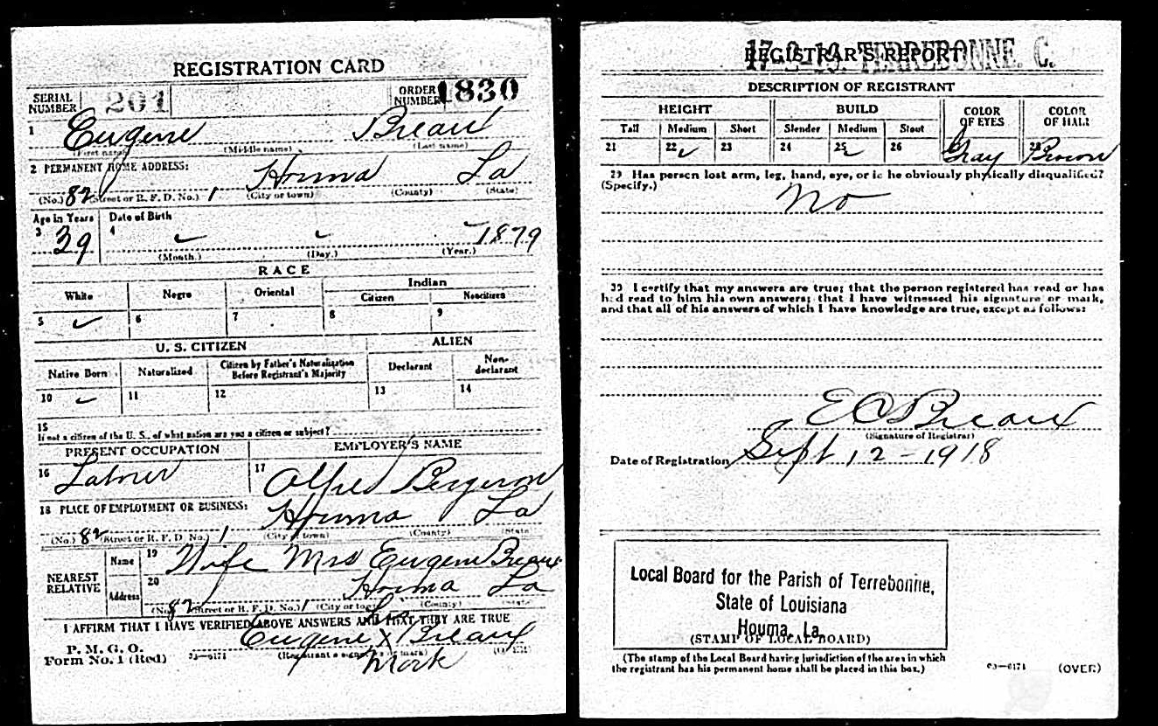 REGISTRATION CARD
SERIAL NUMBER 201 ORDER NUMBER 1830
1 Eugene Breaux
(First name) (Middle name) (Last name)
2 PERMANENT HOME ADDRESS:
82 1 Houma La
(No.) (Street or R. F. D. No.) (City or town) (County) (State)
Age in Years Date of Birth
3 39 4 1879
(Month.) (Day.) (Year.)
RACE
White Negro Oriental Indian
Citizen Noncitizen
5 6 7 8 9
U. S. CITIZEN ALIEN
Native Born Naturalized Citizen by Father's Naturalization Before Registrant's Majority Declarant Non-declarant
10 11 12 13 14
15
If not a citizen of the U. S., of what nation are you a citizen or subject?
PRESENT OCCUPATION EMPLOYER'S NAME
16 Labrer 17 Alfred Bergeron
18 PLACE OF EMPLOYMENT OR BUSINESS:
82 1 Houma La
(No.) (Street or R. F. D. No.) (City or town) (County) (State)
NEAREST RELATIVE
Name 19 Wife Mrs Eugene Breaux
Address 20 82 1 Houma La
(No.) (Street or R. F. D. No.) (City or town) (County)
I AFFIRM THAT I HAVE VERIFIED ABOVE ANSWERS AND THAT THEY ARE TRUE
his
Eugene x Breaux
Mark
P. M. G. O.
Form No. 1 (Red) 03—6171 (Registrant's signature or mark) (OVER)
REGISTRAR'S REPORT
TERREBONNE C.
DESCRIPTION OF REGISTRANT
HEIGHT BUILD COLOR OF EYES COLOR OF HAIR
Tall Medium Short Slender Medium Stout
21 22 23 24 25 26 Gray 28 Brown
29 Has person lost arm, leg, hand, eye, or is he obviously physically disqualified?
(Specify.)
no
30 I certify that my answers are true; that the person registered has read or has
had read to him his own answers; that I have witnessed his signature or mark,
and that all of his answers of which I have knowledge are true, except as follows:
E C Breaux
(Signature of Registrar)
Date of Registration Sept 12-1918
Local Board for the Parish of Terrebonne,
State of Louisiana
Houma, La.
(STAMP OF LOCAL BOARD)
(The stamp of the Local Board having jurisdiction of the area in which
the registrant has his permanent home shall be placed in this box.)
03—6171 (OVER)